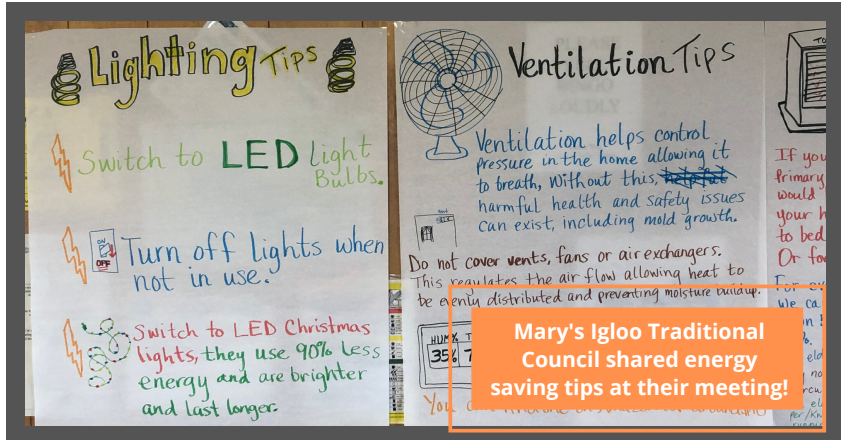 Lighting Tips
Switch to LED light
Bulbs.
ON
OFF
Turn off lights when
not in use.
Switch to LED Christmas
lights, they use 90% less
energy and are brighter
and last longer.
Ventilation Tips
Ventilation helps control
pressure in the home allowing it
to breath, Without this,
harmful health and safety issues
can exist, including mold growth.
Do not cover vents, fans or air exchangers.
This regulates the air flow allowing heat to
be evenly distributed and preventing moisture buildup.
HUM%
35%
You
TO
If you
Primary
would
your h
to bed
Or fo
For ex
we ca
Mary's Igloo Traditional
Council shared energy
saving tips at their meeting!